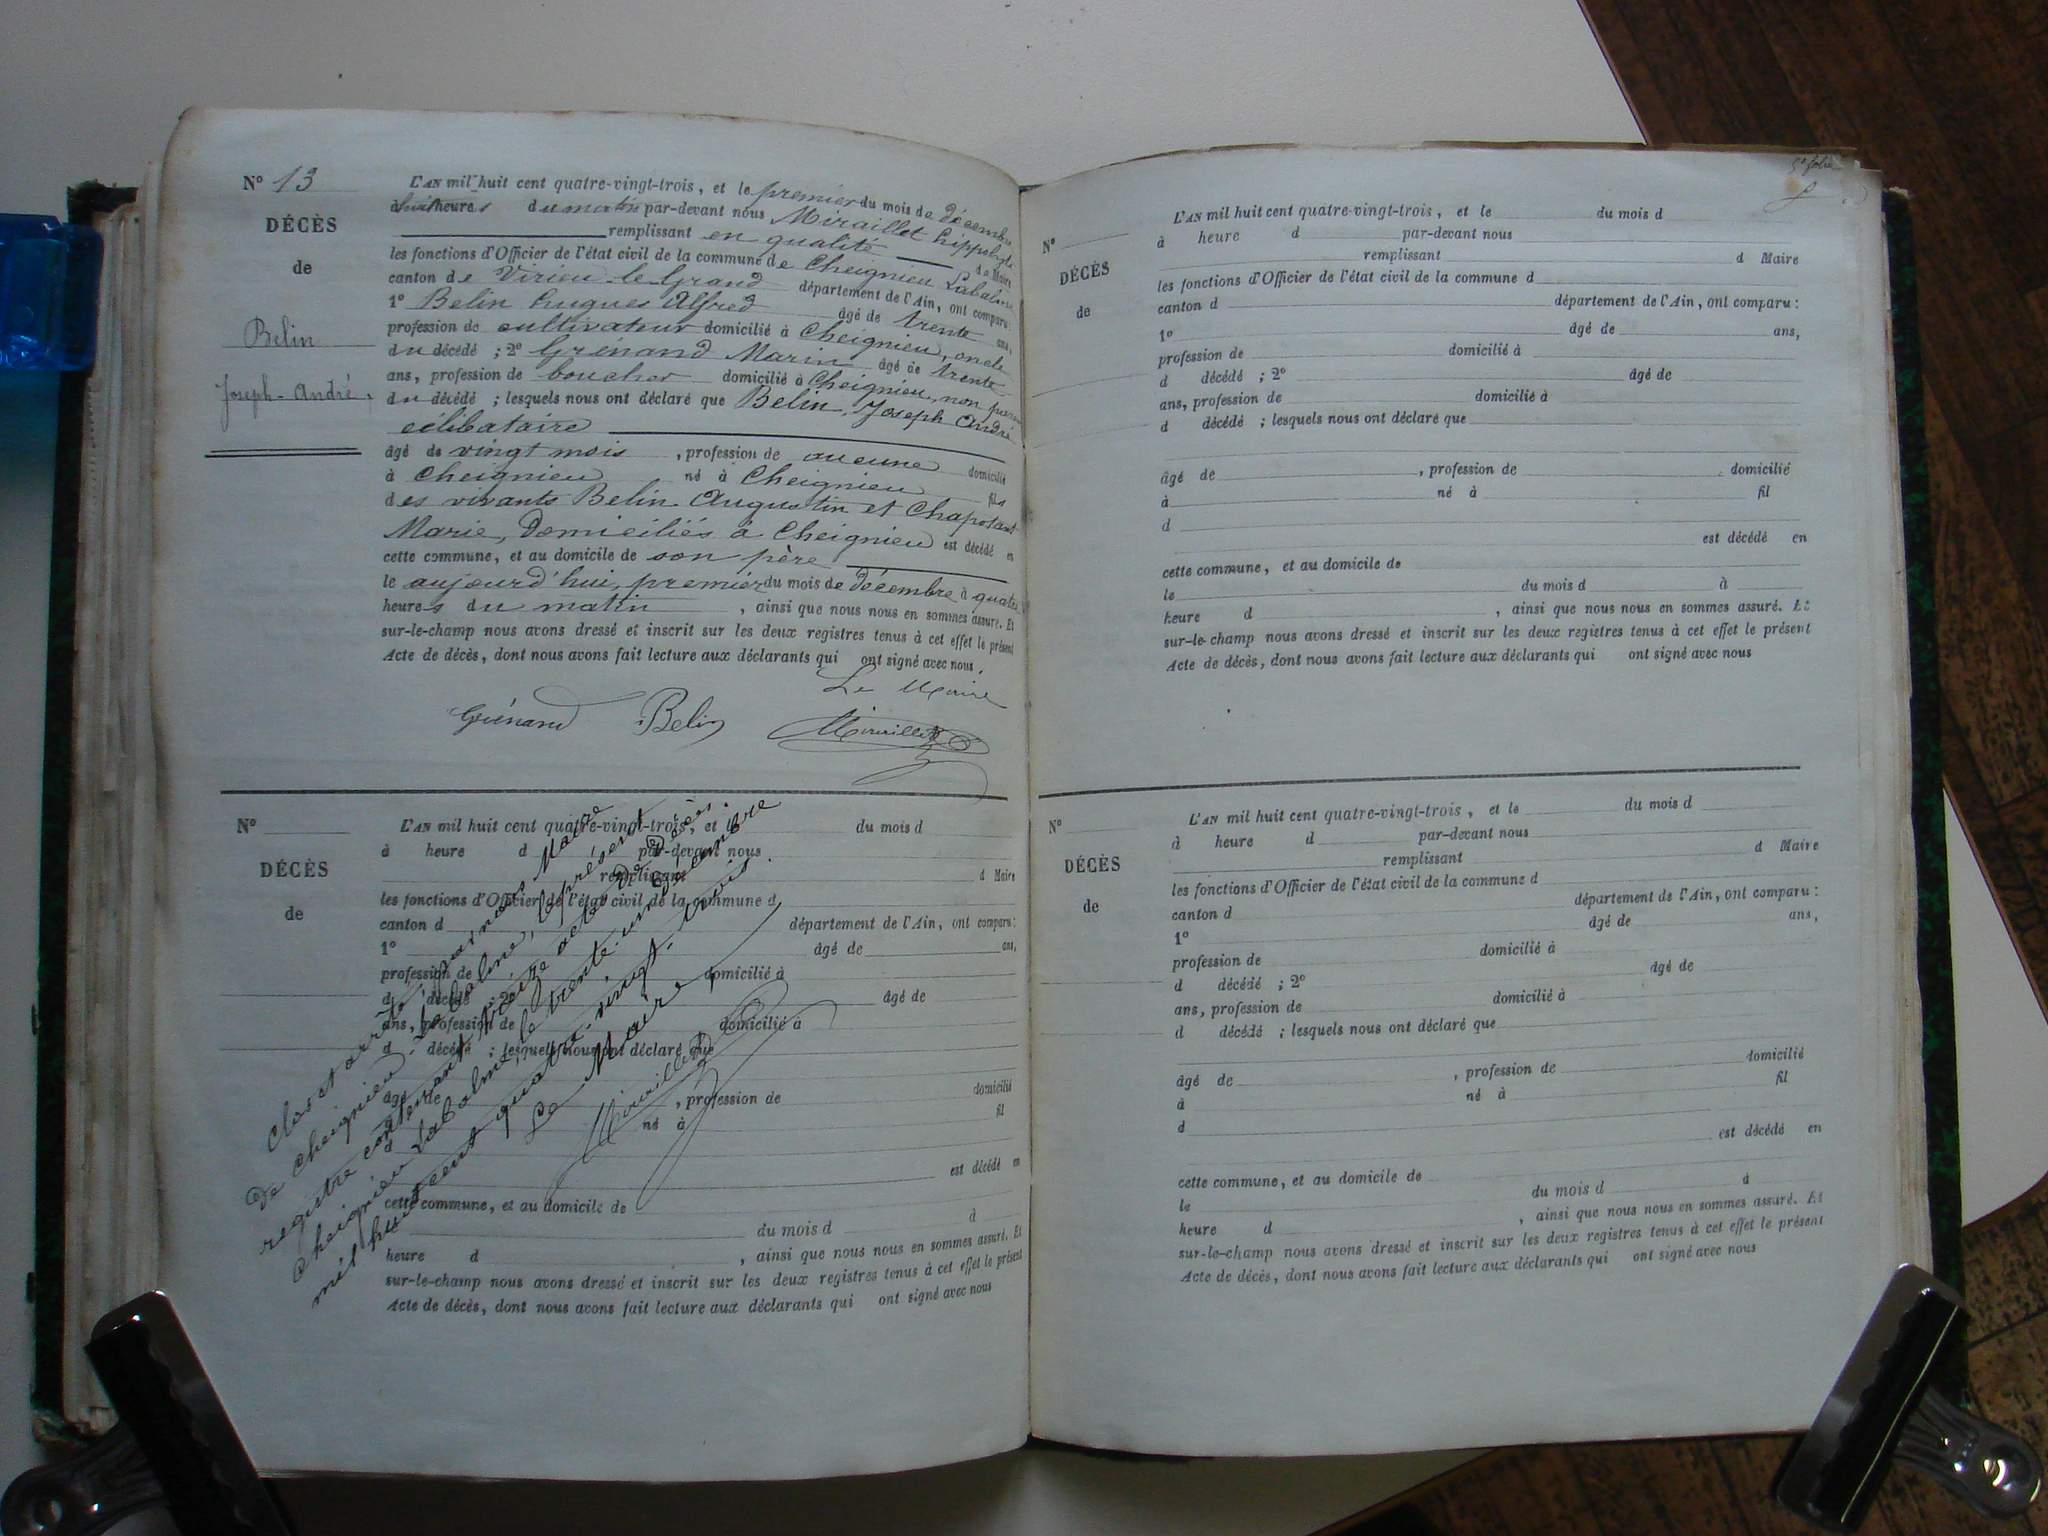 N° 13
DÉCÈS
de
Belin
Joseph-André.
L'AN mil huit cent quatre-vingt-trois, et le premier du mois de décembre
à huit heures du matin par-devant nous Miraillet hippolyte
remplissant en qualité de Maire
les fonctions d'Officier de l'état civil de la commune de Cheignieu Labalme
canton de Virieu-le-Grand département de l'Ain, ont comparu:
1° Belin hugues Alfred âgé de trente ans,
profession de cultivateur domicilié à Cheignieu, oncle
du décédé ; 2° Grénand Marin âgé de trente
ans, profession de boucher domicilié à Cheignieu, non parent
du décédé ; lesquels nous ont déclaré que Belin, Joseph André
célibataire
âgé de vingt mois , profession de aucune domicilié
à Cheignieu né à Cheignieu fils
des vivants Belin Augustin et Chapotant
Marie, Domiciliés à Cheignieu est décédé en
cette commune, et au domicile de son père
le aujourd'hui, premier du mois de décembre à quatre
heures du matin , ainsi que nous nous en sommes assuré. Et
sur-le-champ nous avons dressé et inscrit sur les deux registres tenus à cet effet le présent
Acte de décès, dont nous avons fait lecture aux déclarants qui ont signé avec nous.
Le Maire
Grénand Belin Miraillet
N°
DÉCÈS
de
L'AN mil huit cent quatre-vingt-trois, et le du mois d
à heure d par-devant nous
remplissant d Maire
les fonctions d'Officier de l'état civil de la commune d
canton d département de l'Ain, ont comparu:
1° âgé de ans,
profession de domicilié à
d décédé ; 2° âgé de
ans, profession de domicilié à
d décédé ; lesquels nous ont déclaré que
âgé de , profession de domicilié
à né à fil
d
est décédé en
cette commune, et au domicile de
le du mois d à
heure d , ainsi que nous nous en sommes assuré. Et
sur-le-champ nous avons dressé et inscrit sur les deux registres tenus à cet effet le présent
Acte de décès, dont nous avons fait lecture aux déclarants qui ont signé avec nous
Clos et arrêté par nous Maire
de Cheignieu-Labalme, le présent
registre contenant treize actes de Décès.
Cheignieu Labalme, le trente-un Décembre
mil huit cent quatre-vingt-trois.
Le Maire,
Miraillet
5e folio
N°
DÉCÈS
de
L'AN mil huit cent quatre-vingt-trois, et le du mois d
à heure d par-devant nous
remplissant d Maire
les fonctions d'Officier de l'état civil de la commune d
canton d département de l'Ain, ont comparu:
1° âgé de ans,
profession de domicilié à
d décédé ; 2° âgé de
ans, profession de domicilié à
d décédé ; lesquels nous ont déclaré que
âgé de , profession de domicilié
à né à fil
d
est décédé en
cette commune, et au domicile de
le du mois d à
heure d , ainsi que nous nous en sommes assuré. Et
sur-le-champ nous avons dressé et inscrit sur les deux registres tenus à cet effet le présent
Acte de décès, dont nous avons fait lecture aux déclarants qui ont signé avec nous
N°
DÉCÈS
de
L'AN mil huit cent quatre-vingt-trois, et le du mois d
à heure d par-devant nous
remplissant d Maire
les fonctions d'Officier de l'état civil de la commune d
canton d département de l'Ain, ont comparu:
1° âgé de ans,
profession de domicilié à
d décédé ; 2° âgé de
ans, profession de domicilié à
d décédé ; lesquels nous ont déclaré que
âgé de , profession de domicilié
à né à fil
d
est décédé en
cette commune, et au domicile de
le du mois d à
heure d , ainsi que nous nous en sommes assuré. Et
sur-le-champ nous avons dressé et inscrit sur les deux registres tenus à cet effet le présent
Acte de décès, dont nous avons fait lecture aux déclarants qui ont signé avec nous